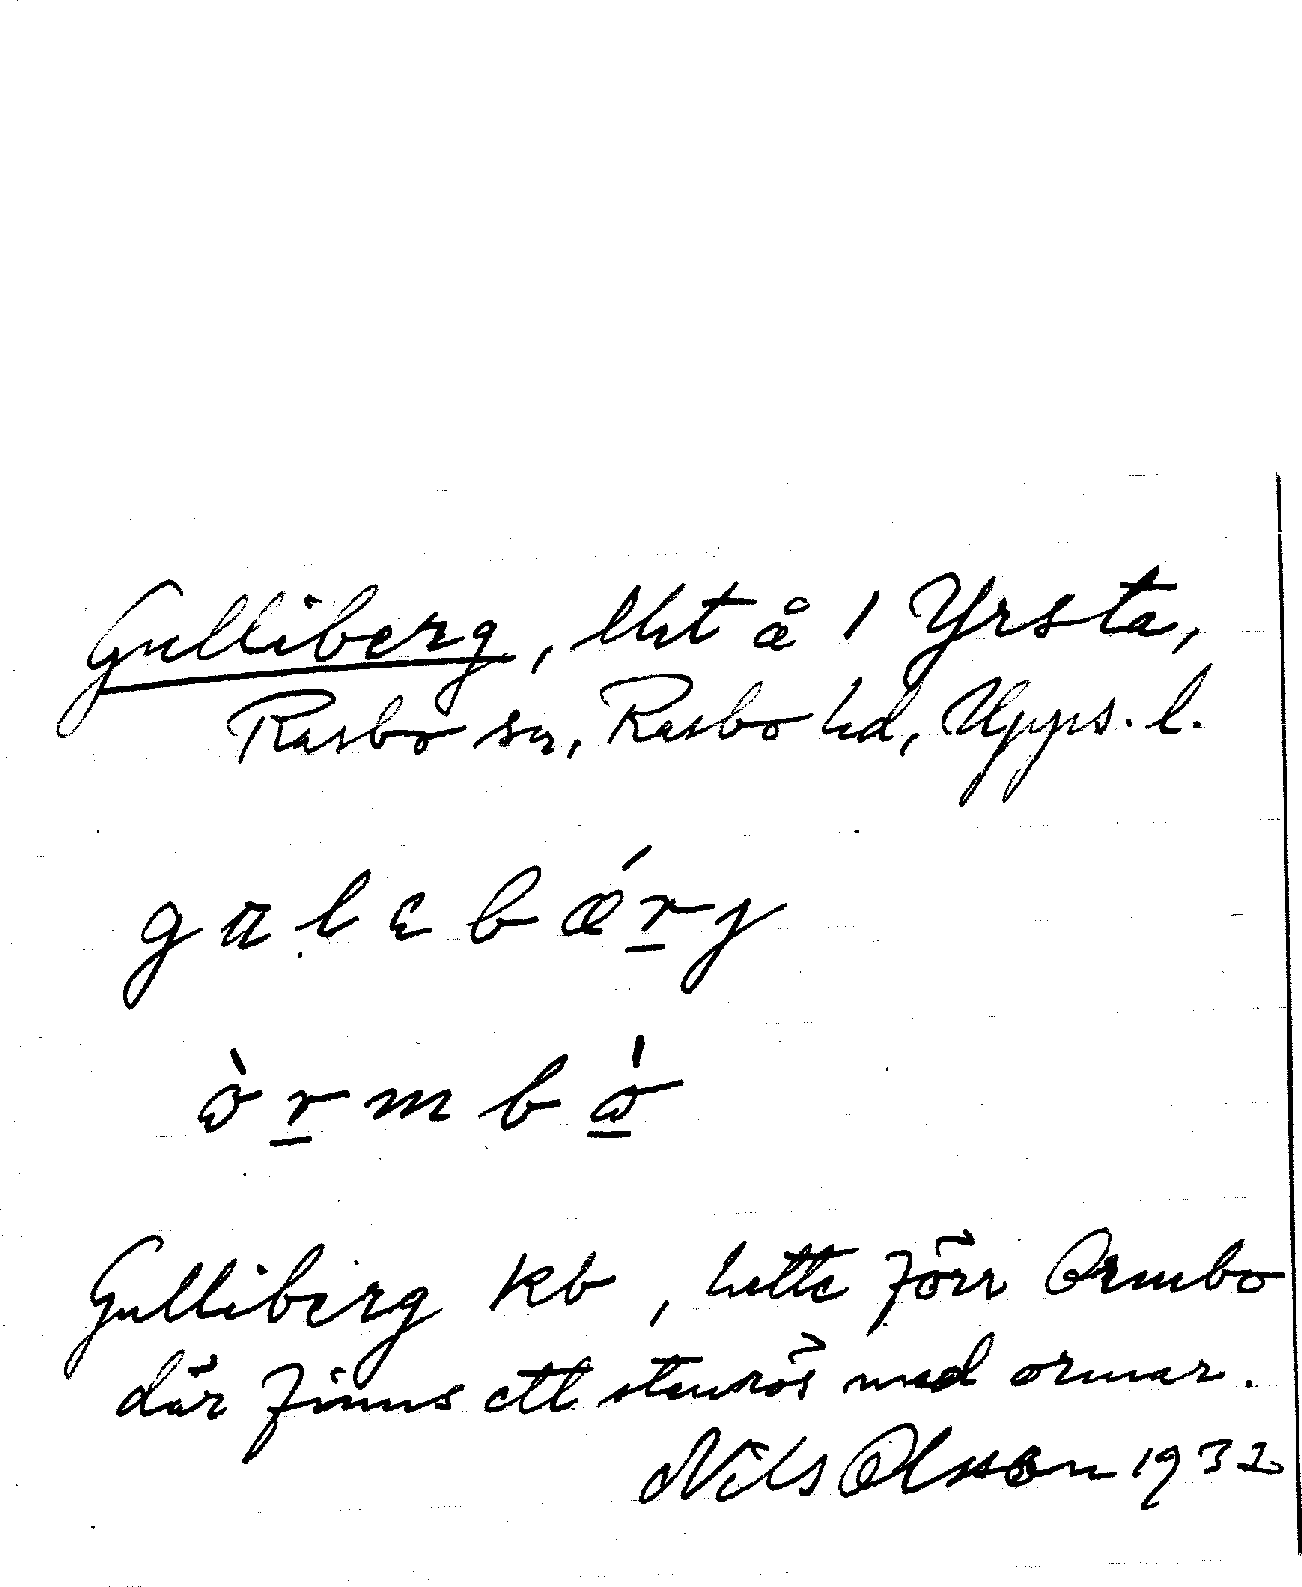 Gulliberg, lht å 1 Yrsta,
Rasbo sn, Rasbo hd, Upps. l.
galebǽr̲j
òr̲mbò̲
Gulliberg kb, hette förr Ormbo
där finns ett stenrös med ormar.
Nils Olsson 1932